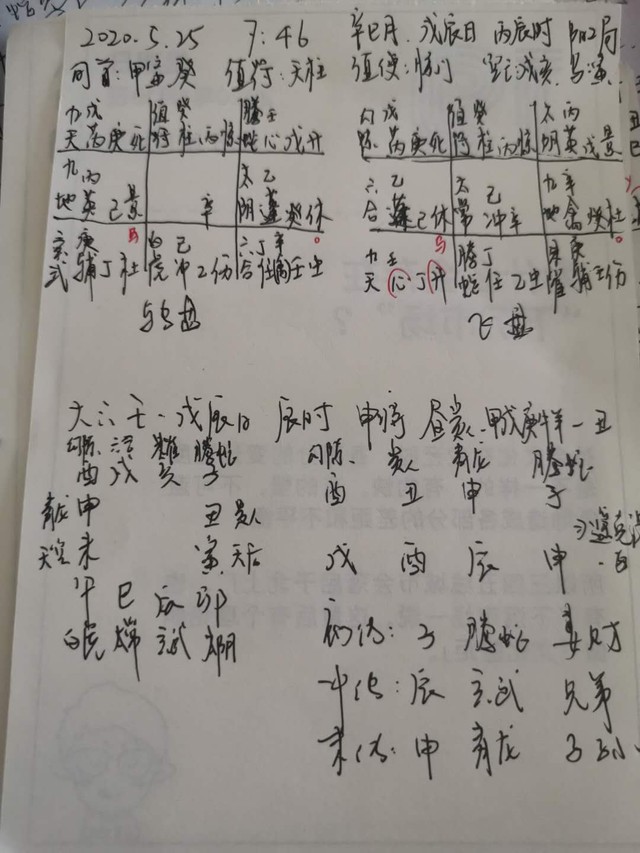 2020.5.25 7:46 辛巳月 戊辰日 丙辰时 阳2局
旬首:甲寅癸 值符:天柱 值使:惊门 空戌亥 马寅
九戊 值癸 螣壬 六戊 值癸 太丙
天芮庚死 符柱丙惊 蛇心戊开 芮庚死 符柱丙惊 阴英戊景
九丙 太乙 六乙 太己 九辛
地英己景 辛 阴蓬癸休 合蓬己休 常冲辛 地禽癸杜
玄庚 马 白己 六丁辛 九壬 马 螣丁 庚
武辅丁杜 虎冲乙伤 合任禽壬生 天心丁开 蛇任乙生 辅壬伤
转盘 飞盘
大六壬-戊辰日 辰时 申将 昼贵 甲戊庚牛羊-丑
勾陈 六合 螣蛇 勾陈 贵人 青龙 螣蛇
酉 戌 亥 子 酉 丑 申 子
青龙 申 丑 贵人
天空 未 寅 天后 戊 酉 辰 申
午 巳 辰 卯
白虎 太常 玄武 太阴 初传:子 螣蛇 妻财
中传:辰 玄武 兄弟
末传:申 青龙 子孙